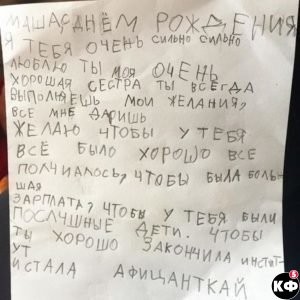 МАША С ДНЁМ РОЖДЕНИЯ
Я ТЕБЯ ОЧЕНЬ СИЛЬНО СИЛЬНО
ЛЮБЛЮ ТЫ МОЯ ОЧЕНЬ
ХОРОШАЯ СЕСТРА ТЫ ВСЕГДА
ВЫПОЛНЯЕШЬ МОИ ЖЕЛАНИЯ,
ВСЕ МНЕ ДАРИШЬ
ЖЕЛАЮ ЧТОБЫ У ТЕБЯ
ВСЁ БЫЛО ХОРОШО ВСЕ
ПОЛЧИАЛОСЬ, ЧТОБЫ БЫЛА БОЛЬ
ШАЯ
ЗАРПЛАТА, ЧТОБЫ У ТЕБЯ БЫЛИ
ПОСЛУШНЫЕ ДЕТИ. ЧТОБЫ
ТЫ ХОРОШО ЗАКОНЧИЛА ИНСТИТ-
УТ
И СТАЛА АФИЦАНТКАЙ
КФ
Б